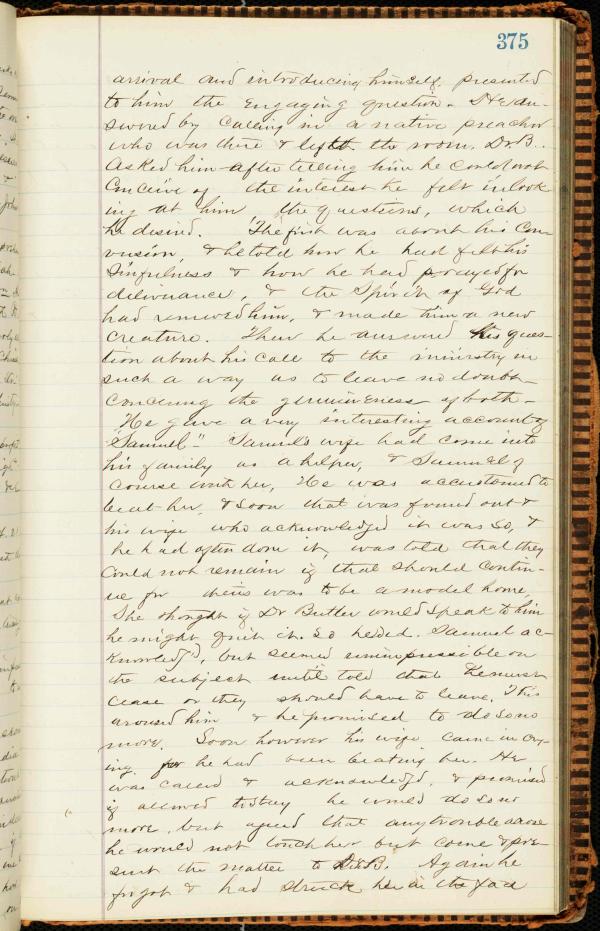 375
arrival and introducing himself, presented
to him the engaging question. He an-
swered by calling in a native preacher
who was there & left the room. Dr B.
asked him after telling him he could not
conceive of the interest he felt in look-
ing at him the questions, which
he desired. The first was about his con-
version, & he told how he had felt his
sinfulness & how he had prayed for
deliverance, & the Spirit of God
had renewed him, & made him a new
creature. Then he answered his ques-
tion about his call to the ministry in
such a way as to leave no doubt
concerning the genuineness of both.
He gave a very interesting account of
"Samuel." Samuel's wife had come into
his family as a helper, & Samuel of
course with her, He was accustomed to
beat her, & soon that was found out &
his wife who acknowledged it was so, &
he had often done it, was told that they
could not remain if that should contin-
ue for theirs was to be a model home,
She thought if Dr Butler would speak to him
he might quit it. So he did. Samuel ac-
knowledg'd, but seemed unimpressible on
the subject until told that he must
cease or they should have to leave. This
aroused him & he promised to do so no
more. Soon however his wife came in cry-
ing, for he had been beating her. He
was called & acknowledg'd, & promised
if allowed to stay he would do so no
more, but agreed that any trouble arose
he would not touch her but come & pre-
sent the matter to Dr B. Again he
forgot & had struck her in the face